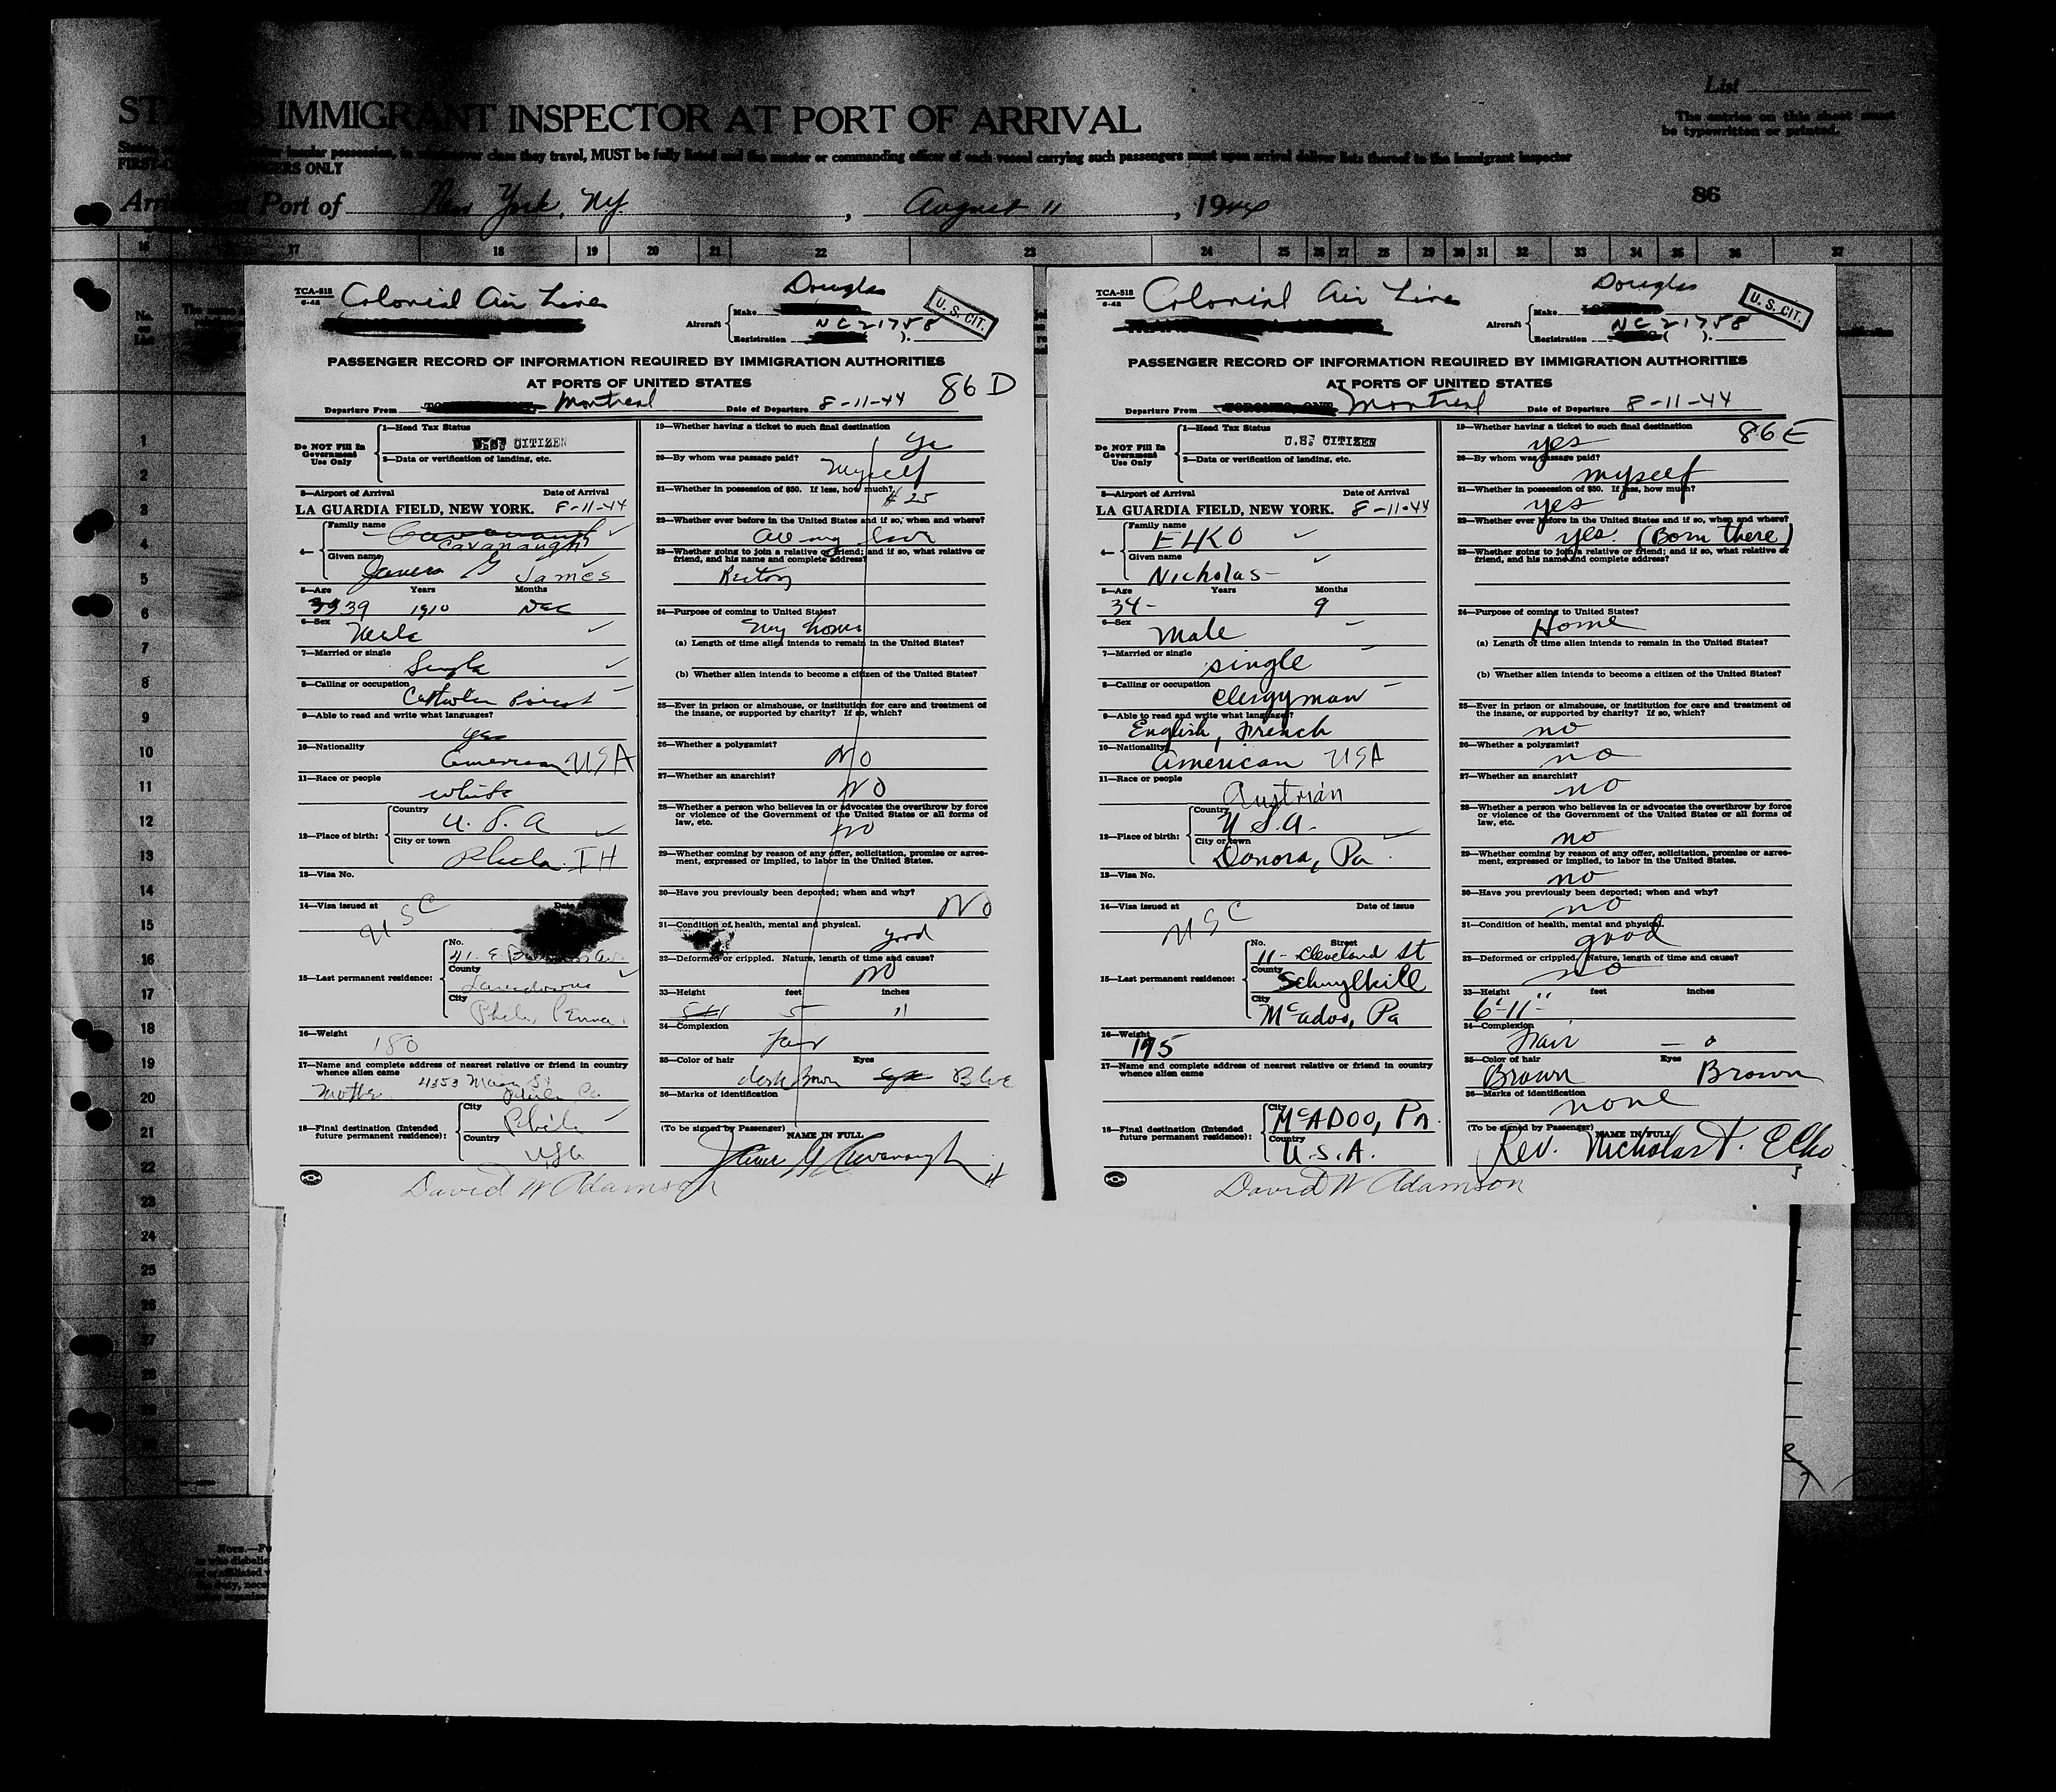 IMMIGRANT INSPECTOR AT PORT OF ARRIVAL
List
The entries on this sheet must
be typewritten or printed.
possession, in class they travel, MUST be fully listed and the master or commanding officer of each vessel carrying such passengers must upon arrival deliver lists thereof to the immigrant inspector
ONLY
Port of New York, NY. , August 11 , 1944
86
16 17 18 19 20 21 22 23 24 25 26 27 28 29 30 31 32 33 34 35 36 37
TCA-518
6-42
Colonial Air Line
Douglas
Aircraft
Make
NC 21758
Registration
U. S. CIT.
PASSENGER RECORD OF INFORMATION REQUIRED BY IMMIGRATION AUTHORITIES
AT PORTS OF UNITED STATES
86 D
Departure From Montreal Date of Departure 8-11-44
Do NOT Fill In
Government
Use Only
1—Head Tax Status
U.S. CITIZEN
2—Data or verification of landing, etc.
3—Airport of Arrival Date of Arrival
LA GUARDIA FIELD, NEW YORK. 8-11-44
4—
Family name
Cavanaugh
Cavanaugh
Given name
James G James
5—Age Years Months
39 1910 Dec
6—Sex
Male
7—Married or single
Single
8—Calling or occupation
Catholic Priest
9—Able to read and write what languages?
yes
10—Nationality
American USA
11—Race or people
white
12—Place of birth:
Country
U. S. A
City or town
Phila. IH
13—Visa No.
14—Visa issued at
USC
15—Last permanent residence:
No.
41. E.
County
Lansdowne
City
Phila, Penna.
16—Weight
180
17—Name and complete address of nearest relative or friend in country
whence alien came
Mother 4353 Main St
Phila, Pa
18—Final destination (Intended
future permanent residence):
City
Phila
Country
USA
19—Whether having a ticket to such final destination
Yes
20—By whom was passage paid?
Myself
21—Whether in possession of $50. If less, how much?
$25
22—Whether ever before in the United States and if so, when and where?
All my
23—Whether going to join a relative or friend; and if so, what relative or
friend, and his name and complete address?
24—Purpose of coming to United States?
my home
(a) Length of time alien intends to remain in the United States?
(b) Whether alien intends to become a citizen of the United States?
25—Ever in prison or almshouse, or institution for care and treatment of
the insane, or supported by charity? If so, which?
26—Whether a polygamist?
NO
27—Whether an anarchist?
NO
28—Whether a person who believes in or advocates the overthrow by force
or violence of the Government of the United States or all forms of
law, etc.
NO
29—Whether coming by reason of any offer, solicitation, promise or agree-
ment, expressed or implied, to labor in the United States.
30—Have you previously been deported; when and why?
NO
31—Condition of health, mental and physical.
good
32—Deformed or crippled. Nature, length of time and cause?
NO
33—Height feet inches
5 11
34—Complexion
Fair
35—Color of hair Eyes
dark brown Blue
36—Marks of identification
(To be signed by Passenger)
NAME IN FULL
James G Cavanaugh
David W Adamson
TCA-518
6-42
Colonial Air Line
Douglas
Aircraft
Make
NC 21758
Registration
U. S. CIT.
PASSENGER RECORD OF INFORMATION REQUIRED BY IMMIGRATION AUTHORITIES
AT PORTS OF UNITED STATES
Departure From TORONTO, ONT. Montreal Date of Departure 8-11-44
86E
Do NOT Fill In
Government
Use Only
1—Head Tax Status
U.S. CITIZEN
2—Data or verification of landing, etc.
3—Airport of Arrival Date of Arrival
LA GUARDIA FIELD, NEW YORK. 8-11-44
4—
Family name
ELKO
Given name
Nicholas
5—Age Years Months
34- 9
6—Sex
Male
7—Married or single
single
8—Calling or occupation
clergyman
9—Able to read and write what languages?
English, French
10—Nationality
American USA
11—Race or people
Austrian
12—Place of birth:
Country
U.S.A.
City or town
Donora, Pa
13—Visa No.
14—Visa issued at Date of issue
USC
15—Last permanent residence:
No. Street
11- Cleveland St
County
Schuylkill
City
McAdoo, Pa
16—Weight
195
17—Name and complete address of nearest relative or friend in country
whence alien came
18—Final destination (Intended
future permanent residence):
City
McADOO, PA.
Country
U.S.A.
19—Whether having a ticket to such final destination
yes
20—By whom was passage paid?
myself
21—Whether in possession of $50. If less, how much?
yes
22—Whether ever before in the United States and if so, when and where?
yes. (Born there)
23—Whether going to join a relative or friend; and if so, what relative or
friend, and his name and complete address?
24—Purpose of coming to United States?
Home
(a) Length of time alien intends to remain in the United States?
(b) Whether alien intends to become a citizen of the United States?
25—Ever in prison or almshouse, or institution for care and treatment of
the insane, or supported by charity? If so, which?
no
26—Whether a polygamist?
no
27—Whether an anarchist?
no
28—Whether a person who believes in or advocates the overthrow by force
or violence of the Government of the United States or all forms of
law, etc.
no
29—Whether coming by reason of any offer, solicitation, promise or agree-
ment, expressed or implied, to labor in the United States.
no
30—Have you previously been deported; when and why?
no
31—Condition of health, mental and physical.
good
32—Deformed or crippled. Nature, length of time and cause?
no
33—Height feet inches
6'-11"
34—Complexion
Fair
35—Color of hair Eyes
Brown Brown
36—Marks of identification
none
(To be signed by Passenger)
NAME IN FULL
Rev. Nicholas T. Elko
David W Adamson
1
2
3
4
5
6
7
8
9
10
11
12
13
14
15
16
17
18
19
20
21
22
23
24
25
26
27
28